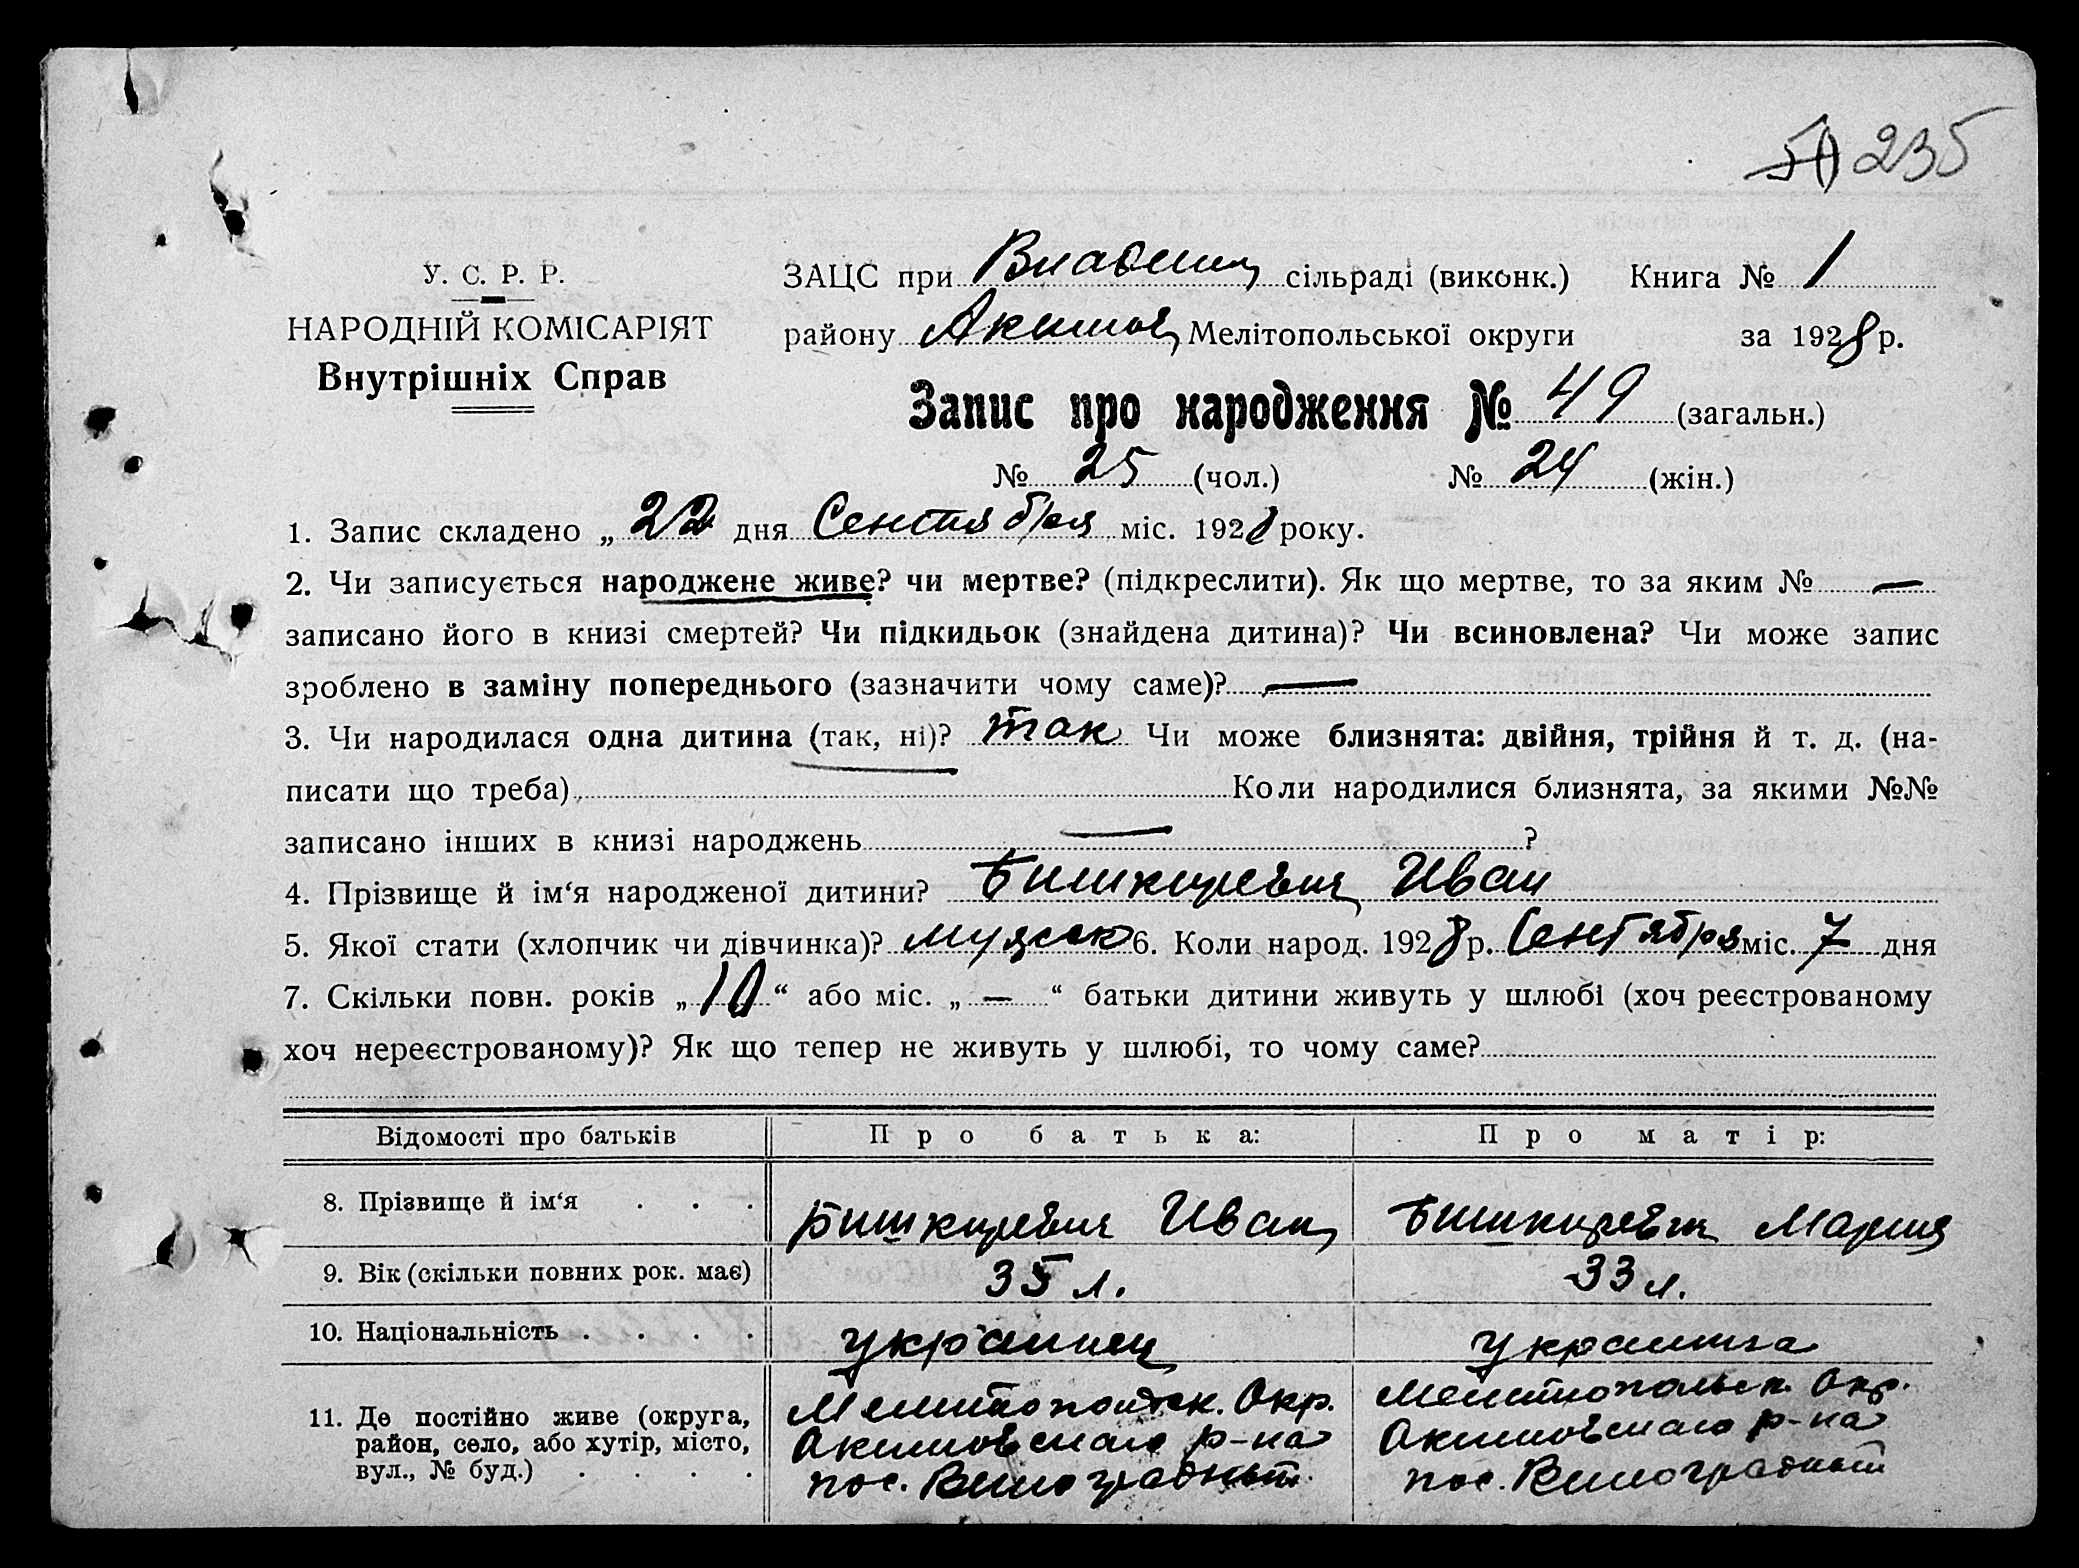 50 235
У. С. Р. Р.
НАРОДНІЙ КОМІСАРІЯТ
Внутрішніх Справ
ЗАЦС при сільраді (виконк.) Книга № 1
району Акимов Мелітопольської округи за 1928 р.
Запис про народження № 49 (загальн.)
№ 25 (чол.) № 24 (жін.)
1. Запис складено „ 22 дня Сентября міс. 1928 року.
2. Чи записується народжене живе? чи мертве? (підкреслити). Як що мертве, то за яким № —
записано його в книзі смертей? Чи підкидьок (знайдена дитина)? Чи всиновлена? Чи може запис
зроблено в заміну попереднього (зазначити чому саме)? —
3. Чи народилася одна дитина (так, ні)? так Чи може близнята: двійня, трійня й т. д. (на-
писати що треба) Коли народилися близнята, за якими №№
записано інших в книзі народжень — ?
4. Прізвище й ім‘я народженої дитини? Бишкиревич Иван
5. Якої стати (хлопчик чи дівчинка)? мужск 6. Коли народ. 1928 р. Сентября міс. 7 дня
7. Скільки повн. років „ 10 “ або міс. „ — “ батьки дитини живуть у шлюбі (хоч реєстрованому
хоч нереєстрованому)? Як що тепер не живуть у шлюбі, то чому саме?
Відомості про батьків Про батька: Про матір:
8. Прізвище й ім‘я . . . Бишкиревич Иван Бишкиревич Мария
9. Вік (скільки повних рок. має) 35 л. 33 л.
10. Національність . . . . украинец украинка
11. Де постійно живе (округа,
район, село, або хутір, місто,
вул., № буд.) . . . .
Мелитопольск. Окр.
Акимовскаго р-на
пос. Виноградный
Мелитопольск. Окр.
Акимовскаго р-на
пос. Виноградный